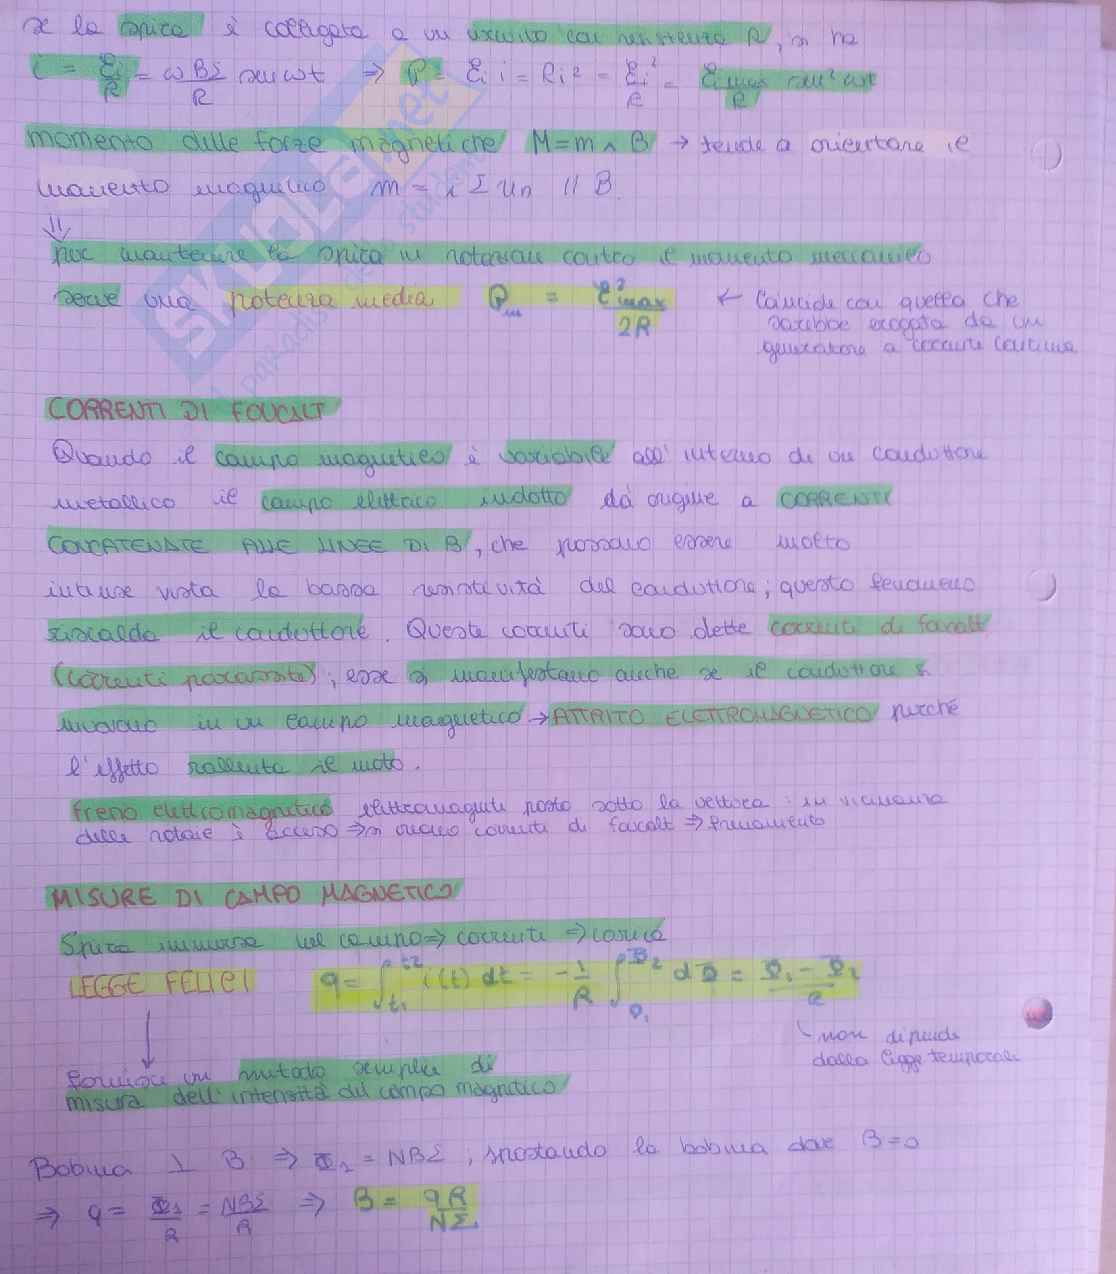 se la spira è collegata a un circuito con resistenza R, si ha
i = Ei/R = ωBΣ/R sen ωt ⇒ P = Ei i = Ri² = Ei²/R = E²max sen² ωt/R
momento delle forze magnetiche M = m ∧ B → tende a orientare il
momento magnetico m = i Σ un // B.
⇓
per mantenere la spira in rotazione contro il momento meccanico
serve una potenza media Pm = E²max/2R ← Coincide con quella che
sarebbe erogata da un
generatore a corrente continua
CORRENTI DI FOUCALT
Quando il campo magnetico è variabile all'interno di un conduttore
metallico il campo elettrico indotto dà origine a CORRENTI
CONCATENATE ALLE LINEE DI B, che possono essere molto
intense vista la bassa resistività del conduttore; questo fenomeno
riscalda il conduttore. Queste correnti sono dette correnti di focalt
(correnti parassite); esse si manifestano anche se il conduttore è
in un campo magnetico → ATTRITO ELETTROMAGNETICO perché
l'effetto rallenta il moto.
freno elettromagnetico elettromagnete posto sotto la vettura: in vicinanza
delle rotaie è acceso ⇒ si creano correnti di focalt ⇒ frenamento
MISURE DI CAMPO MAGNETICO
Spira immersa nel campo ⇒ corrente ⇒ carica
LEGGE FELICI q = ∫t1 t2 i(t) dt = -1/R ∫Φ1 Φ2 dΦ = Φ1 - Φ2/R
non dipende
dalla legge temporale
fornisce un metodo semplice di
misura dell'intensità del campo magnetico
Bobina ⊥ B ⇒ Φ1 = NBΣ, spostando la bobina dove B=0
⇒ q = Φ1/R = NBΣ/R ⇒ B = qR/NΣ
SKUOLA.net